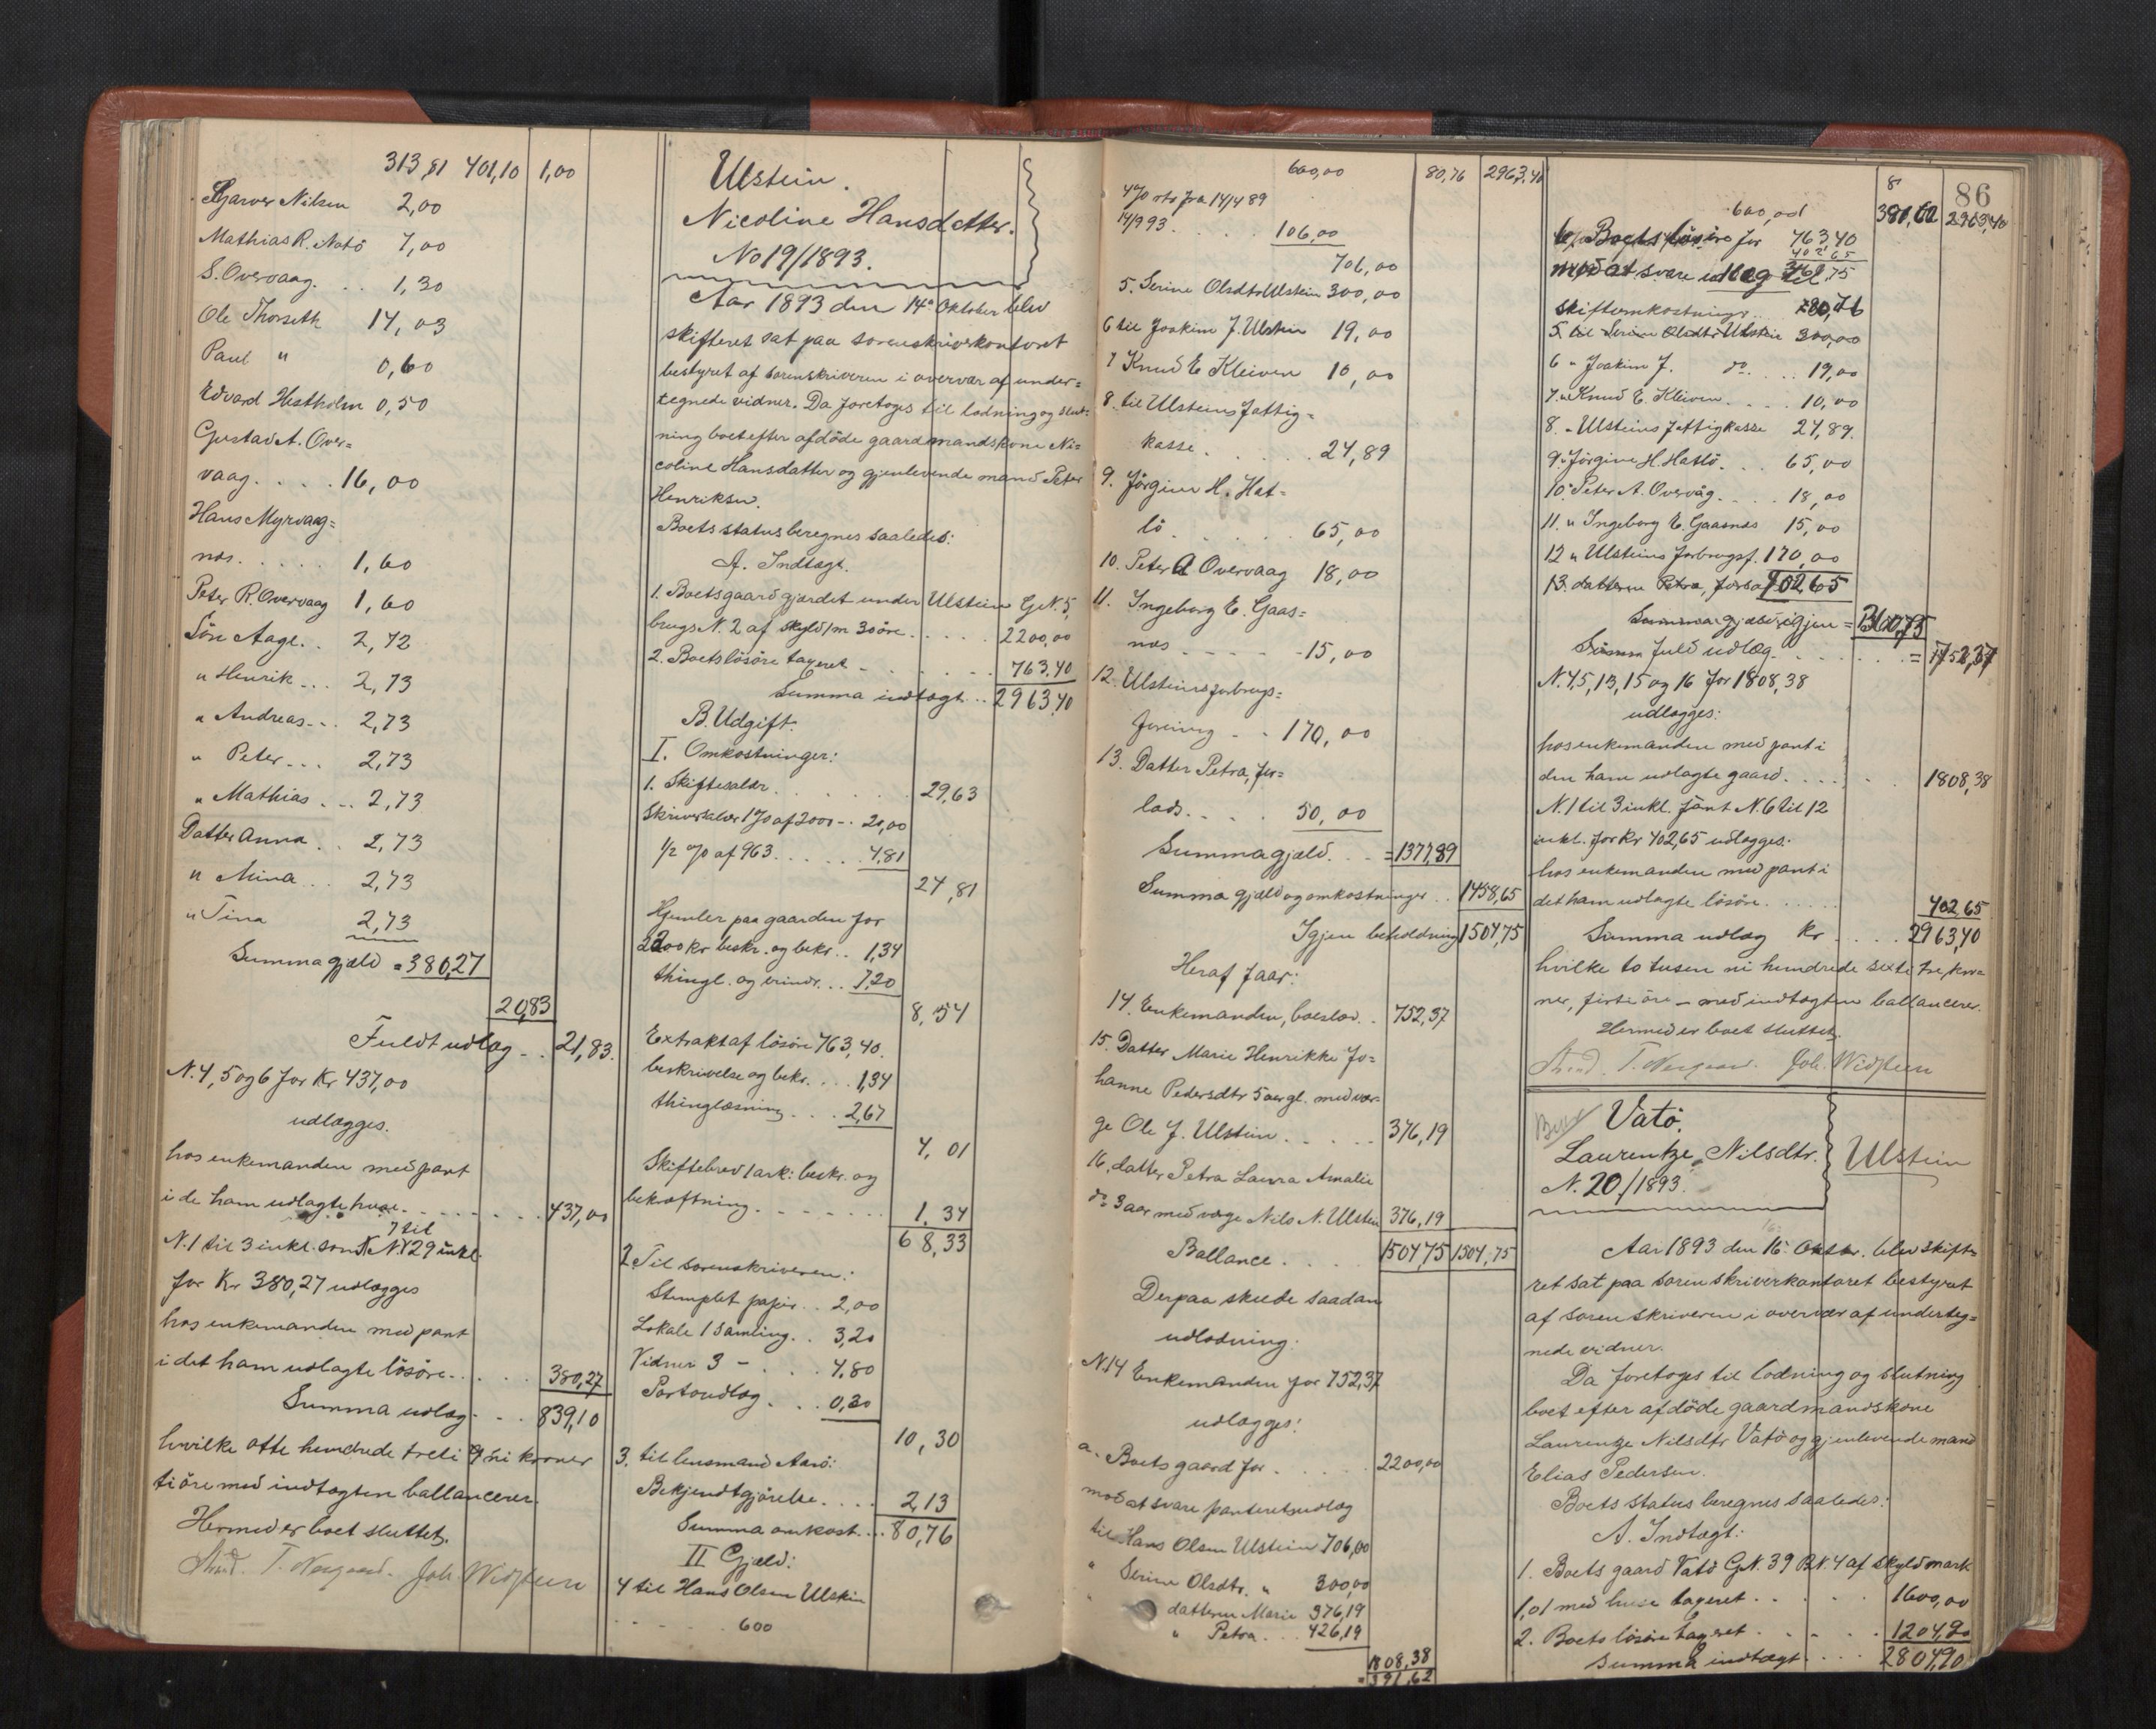 313,81 401,10 1,00
Garver Nilsen 2,00
Mathias R. Natö 7,00
S. Overvaag. . . 1,30
Ole Thorseth 14,03
Paul " 0,60
Edvard Hestholm 0,50
Gustav A. Over=
vaag. . . . 16,00
Hans Myrvaag=
nes. . . . . 1,60
Peter R. Overvaag 1,60
Sön Aage. . 2,72
" Henrik . . . 2,73
" Andreas . . . 2,73
" Peter . . . 2,73
" Mathias . . . 2,73
Datter Anna . . 2,73
" Mina . . . 2,73
" Tina 2,73
Summa gjæld = 380,27
20,83
Fuldt udlæg . . 21,83.
N. 4, 5 og 6 for Kr. 437,00
udlægges.
hos enkemanden med pant
i de ham udlagte huse. . . . . . . 437,00
7 til
N. 1 til 3 inkl. samt N. 29 inkl.
for Kr 380,27 udlægges
hos enkemanden med pant
i det ham udlagte lösöre. . . . 380,27
Summa udlæg . . . 839,10
hvilke otte hundrede treti og ni kroner
ti öre med indtægten ballancerer.
Hermed er boet sluttet.
T. Norgaard. Joh. Widsteen
Ulstein.
Nicoline Hansdatter.
No 19/1893.
Aar 1893 den 14de Oktober blev
skifteret sat paa sorenskriverkontoret
bestyret af sorenskriveren i overvær af under=
tegnede vidner. Da foretoges til lodning og slut=
ning boet efter afdöde gaardmandskone Ni=
coline Hansdatter og gjenlevende mand Peter
Henriksen.
Boets status beregnes saaledes:
A. Indtægt.
1. Boets gaard gjærdet under Ulstein G.N. 5,
brugs N. 2 af skyld 1 m 30 öre . . . . . 2200,00
2. Boets lösöre taxeret - . . . . 763,40
Summa indtægt . . 2963,40
B. Udgift.
I. Omkostninger:
1. Skiftesalær . . . . . . . 29,63
Skriversalær 1 % af 2000 - . . 20,00
1/2 % af 963 . . . . . . 4,81
24,81
Hjemler paa gaarden for
2200 kr beskr. og bekr. . . 1,34
thingl. og erindr. . . 7,20
8,54
Extrakt af lösöre 763,40.
beskrivelse og bekr. . . . 1,34
thinglæsning . . . 2,67
4,01
Skiftebrev 1 ark: beskr. og
bekræftning. . . . . . . . 1,34
68,33
2. Til sorenskriveren:
Stemplet papir . . 2,00
Lokale 1 samling. . 3,20
Vidner 3 - . . . 4,80
Portoudlæg . . . 0,30
10,30
3. til lensmand Aarö:
Bekjendtgjörelse. . . . 2,13
Summa omkost. . . 80,76
II Gjæld:
4 til Hans Olsen Ulstein
- . . . . 600
600,00 80,76 2963,40
4 % rtr fra 14/4 89
14/9 93. . . . . 106,00
706,00
5. Serine Olsdtr Ulstein 300,00
6 til Joakim J. Ulstein 19,00
7 Knud E Kleiven 10,00
8. til Ulsteins fattig=
kasse . . . . . . 24,89
9. Jörgine H. Hat=
lö . . . . . . 65,00
10. Peter A Overvaag 18,00
11. Ingeborg E. Gaas=
nes . . . . . 15,00
12. Ulsteins forbrugs=
forening . . . 170,00
13. Datter Petra, for=
lods. . . . 50,00
Summa gjæld. . . = 1377,89
Summa gjæld og omkostninger . . 1458,65
Igjen beholdning 1504,75
Heraf faar:
14. Enkemanden, boeslod. . 752,37
15. Datter Marie Henrikke Jo=
hanne Pedersdtr 5 aar gl. med vær=
ge Ole J. Ulstein . . . . . 376,19
16. datter Petra Laura Amalie
do 3 aar med værge Nils N. Ulstein 376,19
Ballance . . . . 1504,75 1504,75
Derpaa skede saadan
udlodning:
N. 14 Enkemanden for 752,37
udlægges:
a. Boets gaard for . . . . . 2200,00
mod at svare panteretsudlæg
til Hans Olsen Ulstein 706,00
" Serine Olsdtr. " 300,00
" datteren Marie 376,19
" Petra . . . 426,19
1808,38
= 391,62
86
600,00 391,62 2963,40
b. Boets lösöre for 763,40
402,65
mod at svare udlæg til 75
skifteomkostninger . . 80,76
5. til Serine Olsdtr Ulstein 300,00
6 " Joakim J. do. . . . 19,00
7. " Knud E. Kleiven . . . . 10,00
8. " Ulsteins fattigkasse 24,89.
9. " Jörgine H. Hatlö . . . 65,00
10. " Peter A. Overvåg . . . 18,00
11. " Ingeborg E. Gaasnes 15,00
12 " Ulsteins forbrugsf. 170,00
13. datteren Petra, 402,65
igjen = 360,75
Summa fuld udlæg . . . . . . . . = 752,37
N. 4, 5, 13, 15 og 16 for 1808,38
udlægges:
hos enkemanden med pant i
den ham udlagte gaard. . . . . 1808,38
N. 1 til 3 inkl. samt N. 6 til 12
inkl. for Kr 402,65 udlægges.
hos enkemanden med pant i
det ham udlagte lösöre. . . . . . 402,65
Summa udlæg kr . . . . 2963,40
hvilke to tusen ni hundrede sexti tre kro=
ner, firti öre - med indtægten ballancerer.
Hermed er boet sluttet.
T. Norgaard. Joh. Widsteen
Vatö.
Laurentze Nilsdtr.
N. 20/1893.
Ulstein
Aar 1893 den 16. Oktbr. blev skifte
ret sat paa sorenskriverkontoret bestyret
af sorenskriveren i overvær af underteg=
nede vidner.
Da foretoges til lodning og slutning
boet efter afdöde gaardmandskone
Laurentze Nilsdtr Vatö og gjenlevende mand
Elias Pedersen.
Boets status beregnes saaledes:
A. Indtægt:
1. Boets gaard Vatö G.N. 39 B.N. 4 af skyld mark
1,01 med huse taxeret . . . . . . 1600,00
2. Boets lösöre taxeret . . . . . . 1204,90
Summa indtægt . . . . 2804,90